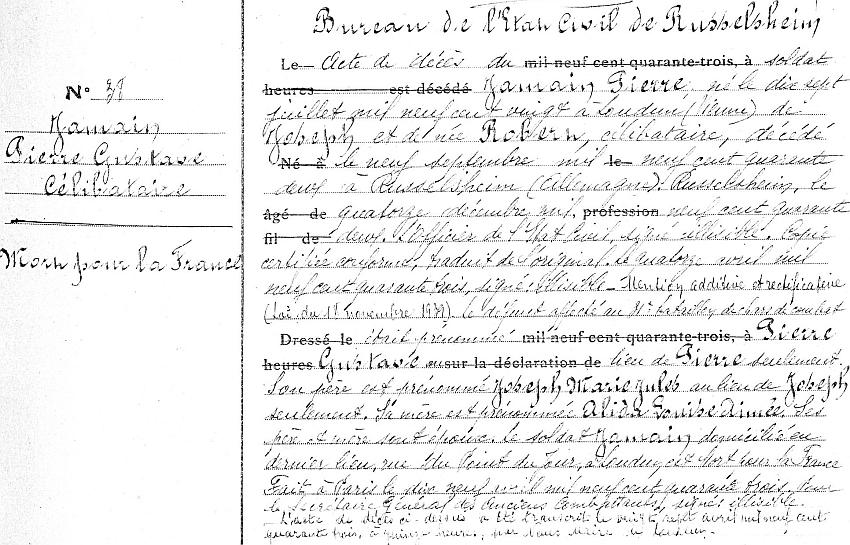 N° 38
Jamain
Pierre Gustave
Célibataire
Mort pour la France
Bureau de l'Etat Civil de Russelsheim
Le Acte de décès du mil neuf cent quarante-trois, à soldat
heures est décédé Jamain Pierre, né le dix sept
juillet mil neuf cent vingt à Loudun (Vienne) de
Joseph et de née Robern, célibataire, décédé
Né à le neuf septembre mil le neuf cent quarante
deux à Russelsheim (Allemagne). Russelsheim, le
âgé de quatorze décembre mil, profession neuf cent quarante
fil de deux. L'Officier de l'Etat Civil, signé illisible. Copie
certifiée conforme, traduit de l'original, le quatorze avril mil
neuf cent quarante trois, signé : illisible - Mention additive et rectificative
(Loi du 1er novembre 1939) le défunt affecté au 31e bataillon de chars de combat
Dressé le était prénommé mil neuf cent quarante-trois, à Pierre
heures Gustave sur la déclaration de lieu de Pierre seulement.
Son père est prénommé Joseph Marie Jules au lieu de Joseph
seulement. Sa mère est prénommée Alida Louise Aimée. Ses
père et mère sont époux. Le soldat Jamain domicilié en
dernier lieu, rue du Point du Jour, à Loudun est Mort pour la France
Fait à Paris le dix neuf avril mil neuf cent quarante trois, pour
le Secrétaire Général des Anciens Combattants, signé illisible.
L'acte de décès ci-dessus a été transcrit le vingt sept avril mil neuf cent
quarante trois, à quinze heures, par nous Maire de Loudun.